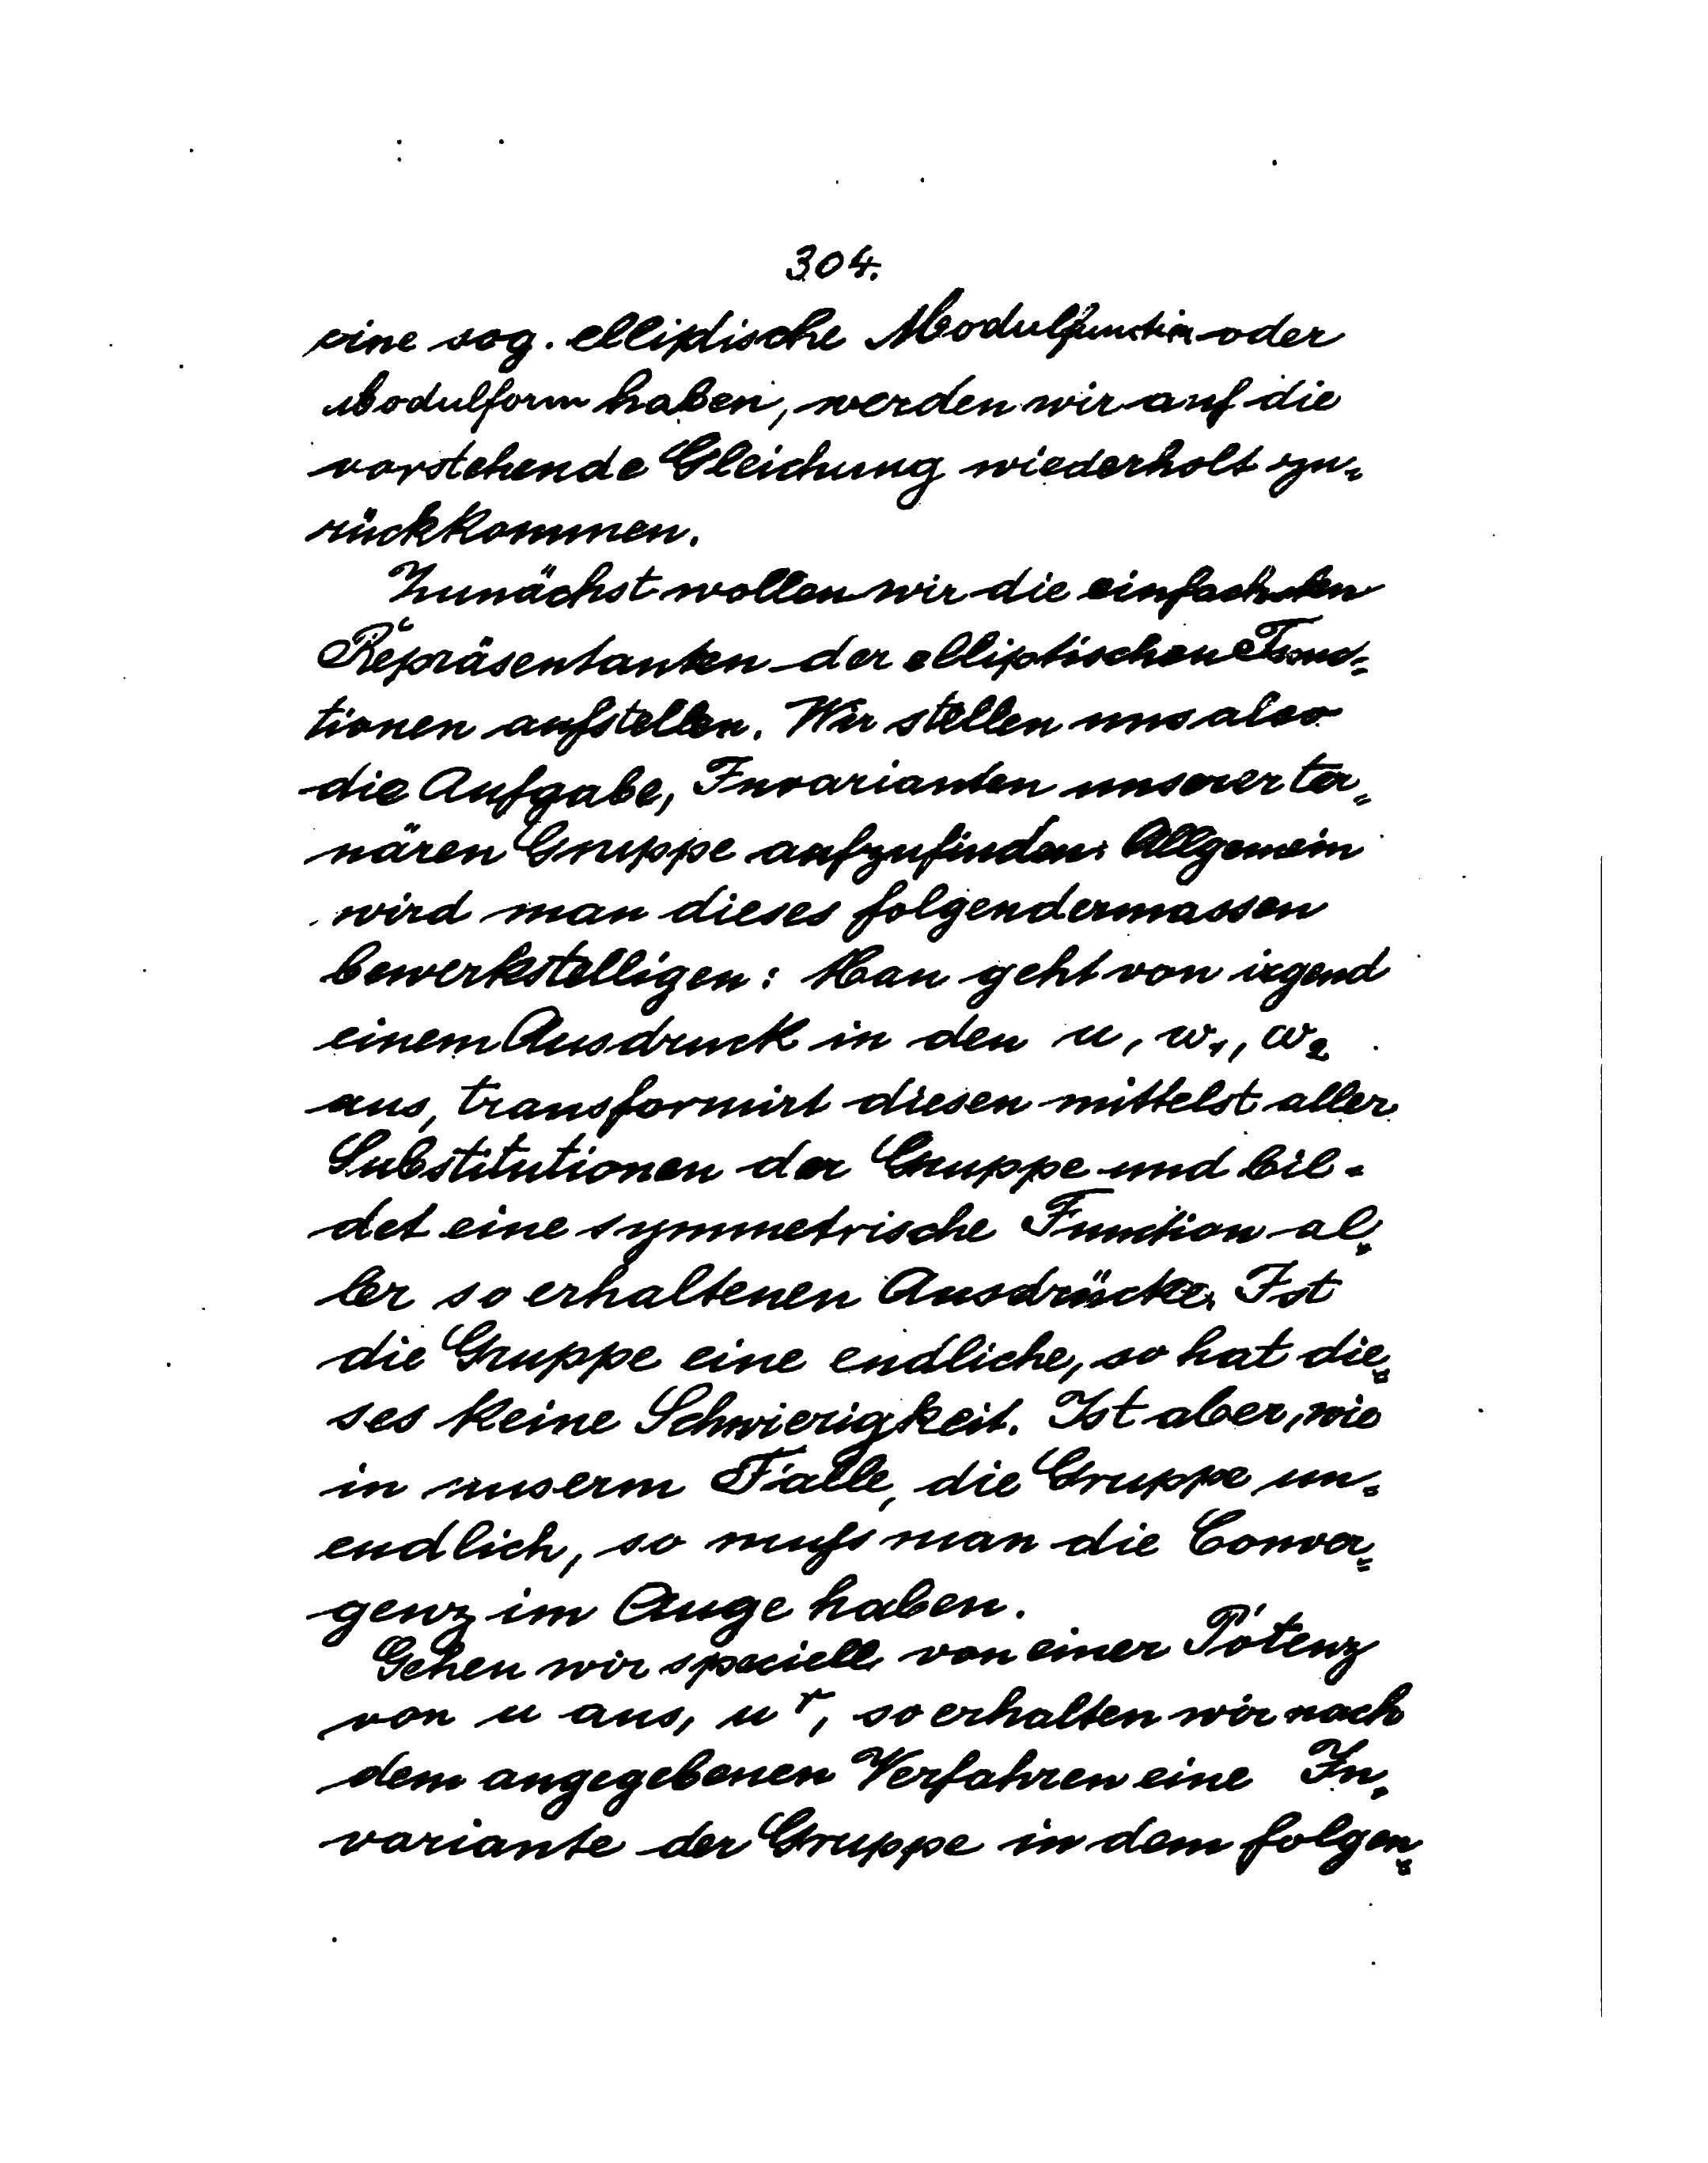 304.
eine sog. elliptische Modulfunction oder
Modulform haben, werden wir auf die
vorstehende Gleichung wiederholt zu-
rückkommen.
Zunächst wollen wir die einfachsten
Repräsentanten der elliptischen Func-
tionen aufstellen. Wir stellen uns also
die Aufgabe, Invarianten unserer ter-
nären Gruppe aufzufinden. Allgemein
wird man dieses folgendermassen
bewerkstelligen: Man geht von irgend
einem Ausdruck in den u, ω₁, ω₂
aus, transformirt diesen mittelst aller
Substitutionen der Gruppe und bil-
det eine symmetrische Function al-
ler so erhaltenen Ausdrücke. Ist
die Gruppe eine endliche, so hat die-
ses keine Schwierigkeit. Ist aber, wie
in unserm Falle, die Gruppe un-
endlich, so muß man die Conver-
genz im Auge haben.
Gehen wir speciell von einer Potenz
von u aus, uʳ, so erhalten wir nach
dem angegebenen Verfahren eine In-
variante der Gruppe in dem folgen-